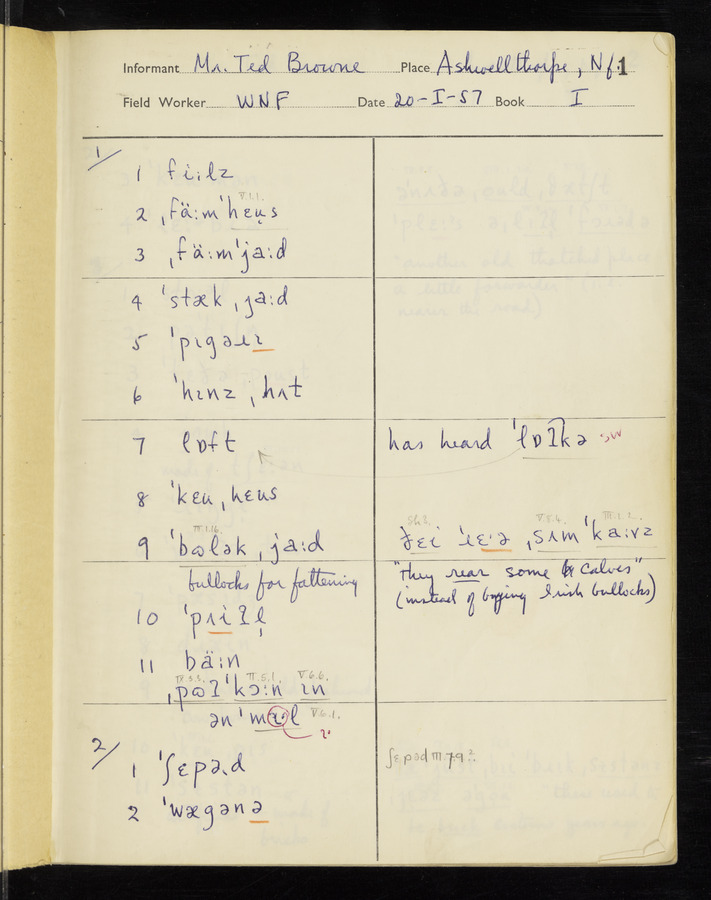 Informant Mr. Ted Browne Place Ashwellthorpe, Nf. 1
Field Worker WNF Date 20-I-57 Book I
1/
1 fiːlz
V.1.1.
2 ˌfäːmˈhɛʉs
3 ˌfäːmˈjaːd
4 ˈstæk ˌjaːd
5 ˈpɪɡəɹɪ
6 ˈhɪnz ˌhʌt
7 lɒft has heard ˈlɒʔkə sw
8 ˈkɛu ˌhɛus
III.1.16. Sh 3. V.8.4. III.1.2.
9 ˈbʊlək ˌjaːd ðɛi ˈɹɛːə ˌsʌm ˈkaːvz
bullocks for fattening "They rear some calves"
(instead of buying Irish bullocks)
10 ˈpʌiʔl̩
11 bäːn
IX.3.3. II.5.1. V.6.6.
ˌpʊʔ ˈkɔːn ɪn
ən ˈmɪl V.6.1.
2/
1 ˈʃɛpəd ʃɛpəd III.7.9?
2 ˈwæɡənə